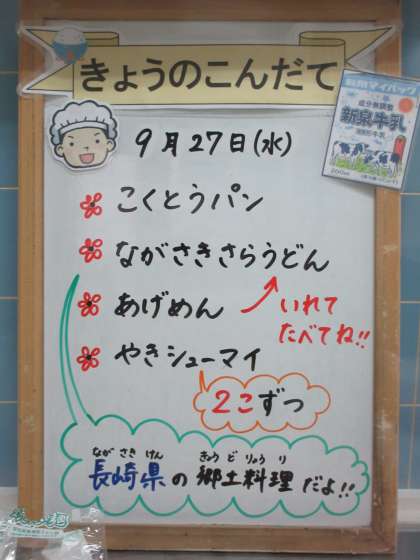 きょうのこんだて
9月27日(水)
こくとうパン
ながさきさらうどん
あげめん
いれて
たべてね!!
やきシューマイ
2こずつ
長崎県の郷土料理だよ!!
ながさきけん
きょうどりょうり
成分無調整
新泉牛乳
200ml